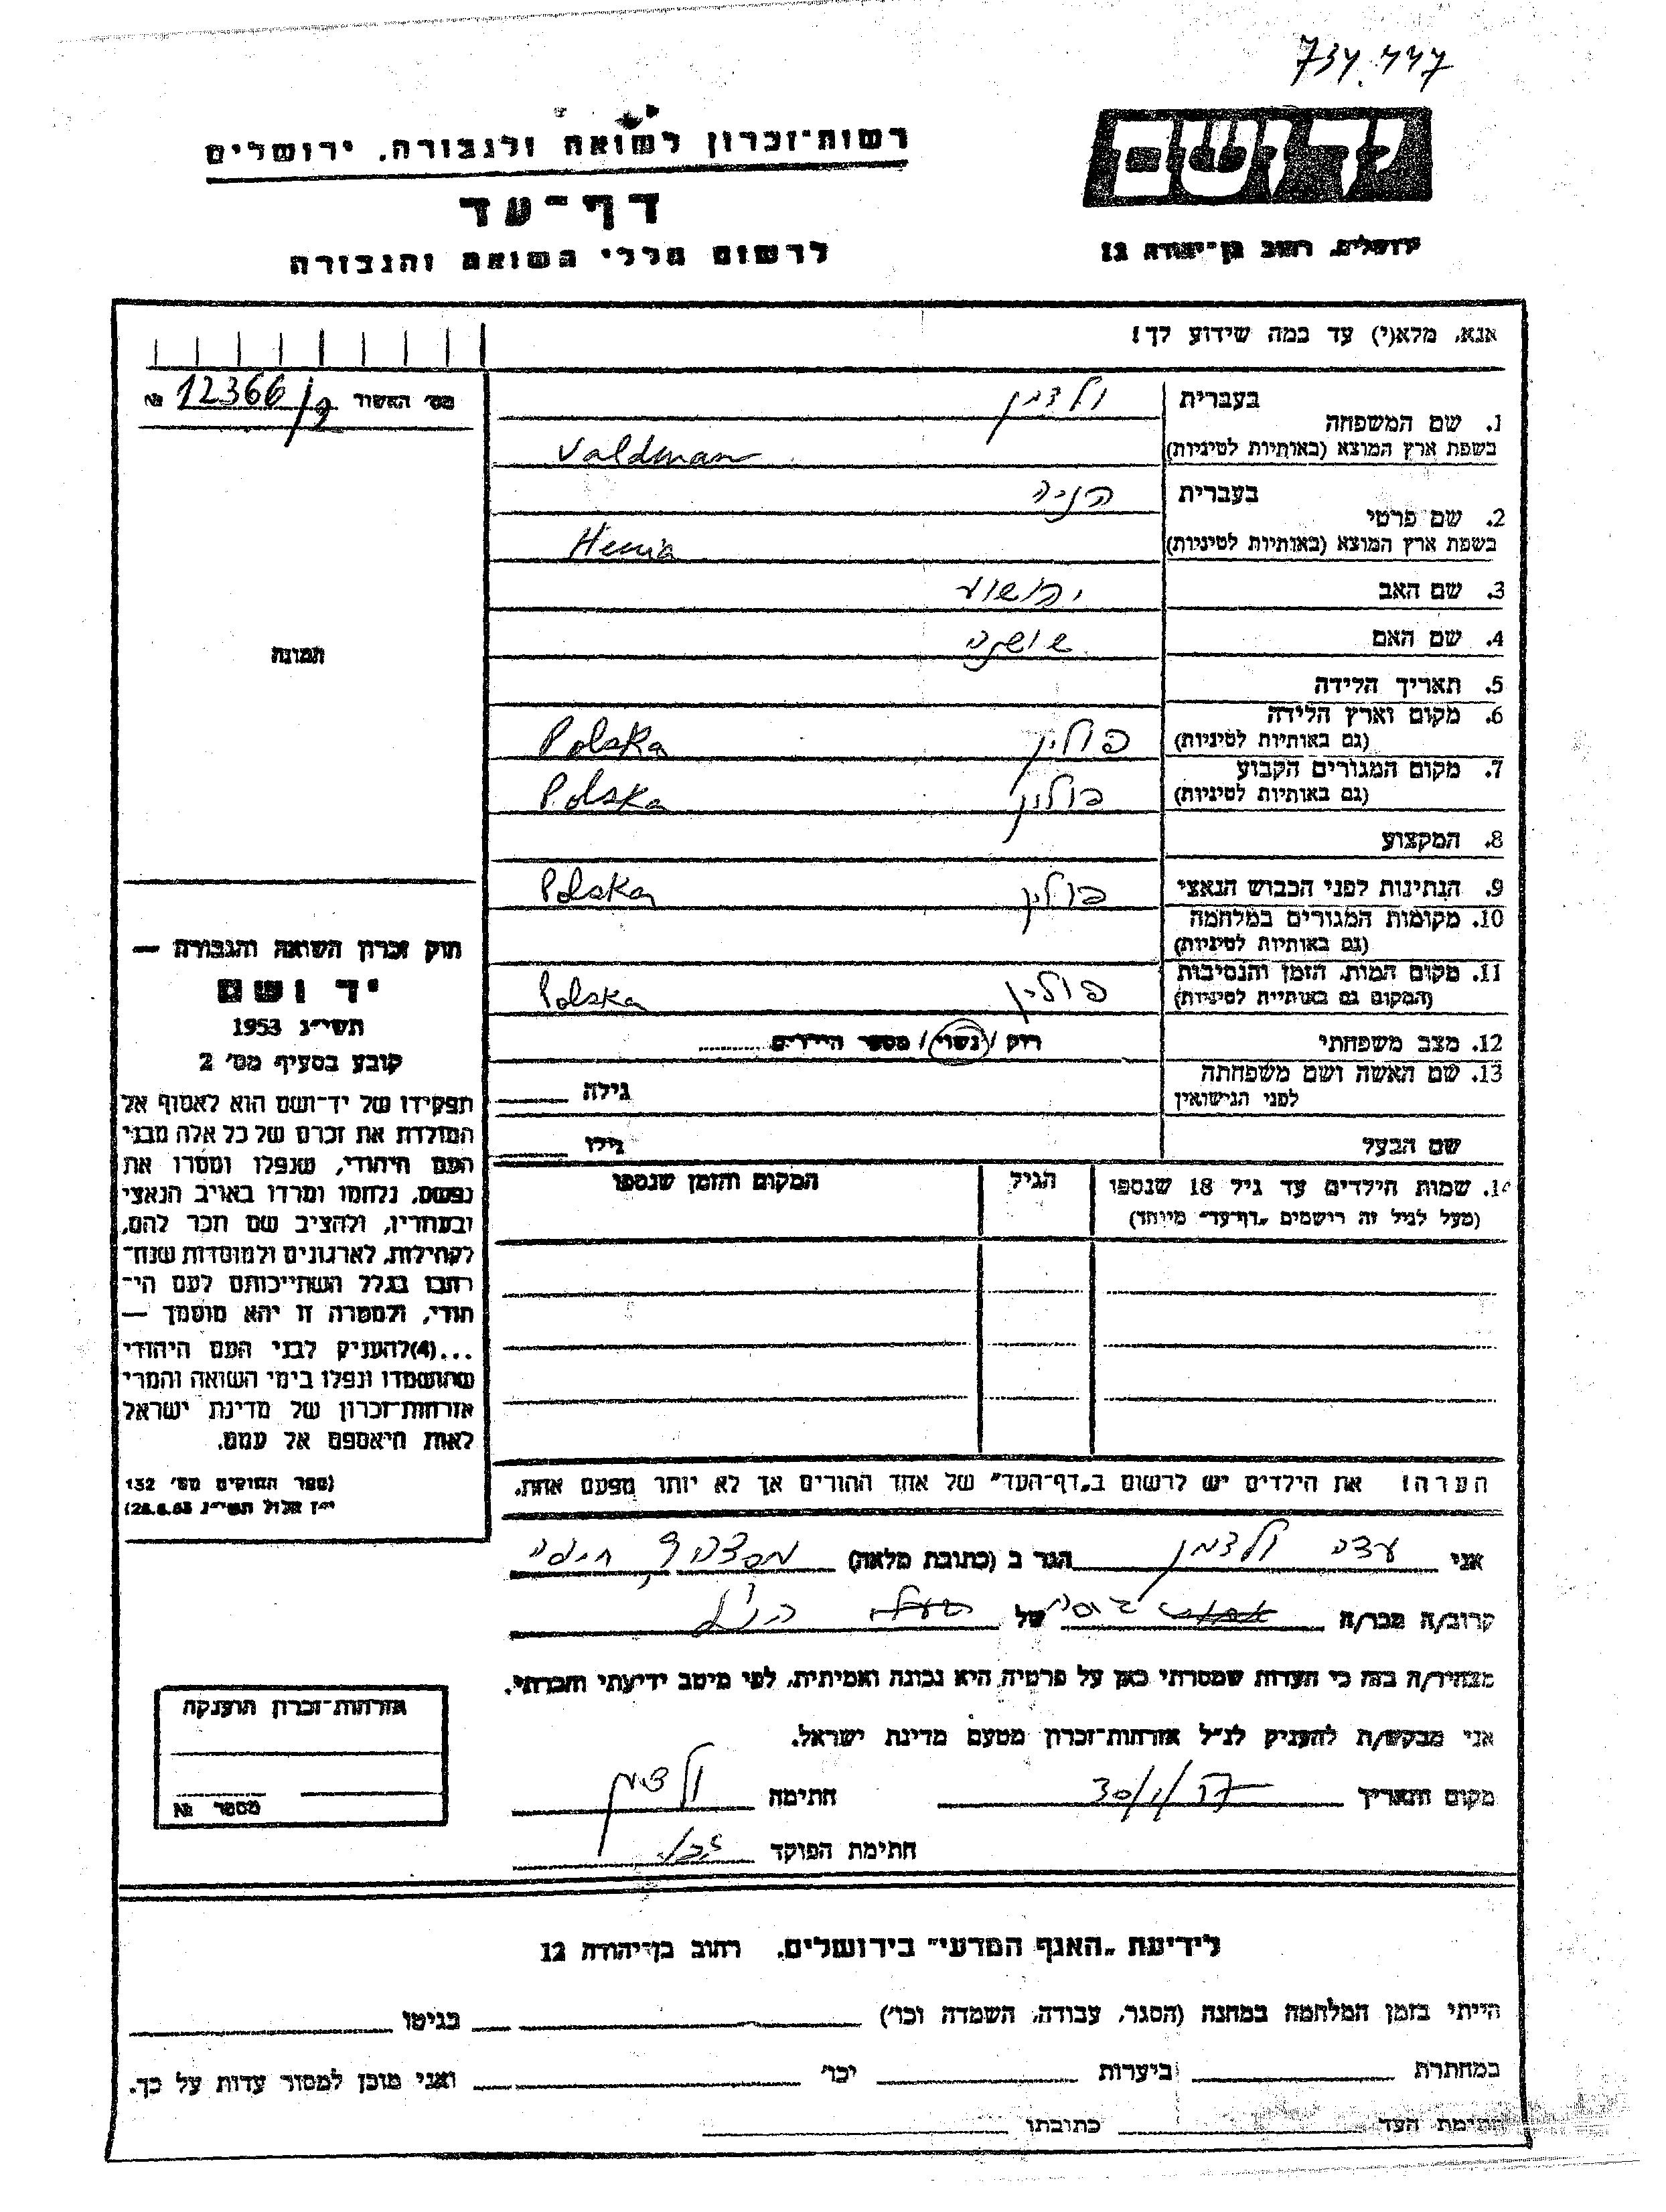 734.447
יד ושם
ירושלים, רחוב בן־יהודה 12
רשות־זכרון לשואה ולגבורה, ירושלים
דף־עד
לרשום חללי השואה והגבורה
אנא, מלא(י) עד כמה שידוע לך!
מס׳ האשור 12366/ № 
1. שם המשפחה
בעברית ולדמן
בשפת ארץ המוצא (באותיות לטיניות) Valdman
2. שם פרטי
בעברית הניה
בשפת ארץ המוצא (באותיות לטיניות) Henia
3. שם האב יהושוע
4. שם האם שושנה
5. תאריך הלידה
6. מקום וארץ הלידה
(גם באותיות לטיניות) פולין Polska
7. מקום המגורים הקבוע
(גם באותיות לטיניות) פולין Polska
8. המקצוע
9. הנתינות לפני הכבוש הנאצי פולין Polska
10. מקומות המגורים במלחמה
(גם באותיות לטיניות)
11. מקום המות, הזמן והנסיבות
(המקום גם באותיות לטיניות) פולין Polska
12. מצב משפחתי רווק / נשוי / מספר הילדים
13. שם האשה ושם משפחתה
לפני הנישואין גילה
שם הבעל גילו
14. שמות הילדים עד גיל 18 שנספו הגיל המקום והזמן שנספו
(מעל לגיל זה רישמים „דף־עד״ מיוחד)
הערה! את הילדים יש לרשום ב„דף־העד״ של אחד ההורים אך לא יותר מפעם אחת.
תמונה
חוק זכרון השואה והגבורה —
יד ושם
תשי״ג 1953
קובע בסעיף מס׳ 2
תפקידו של יד־ושם הוא לאסוף אל
המולדת את זכרם של כל אלה מבני
העם היהודי, שנפלו ומסרו את
נפשם, נלחמו ומרדו באויב הנאצי
ובעוזריו, ולהציב שם וזכר להם,
לקהילות, לארגונים ולמוסדות שנח־
רבו בגלל השתייכותם לעם הי־
הודי, ולמטרה זו יהא מוסמך —
...(4)להעניק לבני העם היהודי
שהושמדו ונפלו בימי השואה והמרי
אזרחות־זכרון של מדינת ישראל
לאות היאספם אל עמם.
(ספר החוקים מס׳ 132
י״ז אלול תשי״ג 28.8.53)
אני עדה ולדמן הגר ב (כתובת מלאה) חיפה
קרוב/ה מכר/ה גיסה של הנ״ל
מצהיר/ה בזה כי העדות שמסרתי כאן על פרטיה היא נכונה ואמיתית, לפי מיטב ידיעתי והכרתי.
אני מבקש/ת להעניק לנ״ל אזרחות־זכרון מטעם מדינת ישראל.
מקום ותאריך 30/1/57 חתימה ולדמן
חתימת הפוקד
אזרחות־זכרון הוענקה
מספר №
לידיעת „האגף המדעי״ בירושלים, רחוב בן־יהודה 12
הייתי בזמן המלחמה במחנה (הסגר, עבודה, השמדה וכו׳) בגיטו
במחתרת ביערות וכו׳ ואני מוכן למסור עדות על כך.
חתימת העד כתובתו